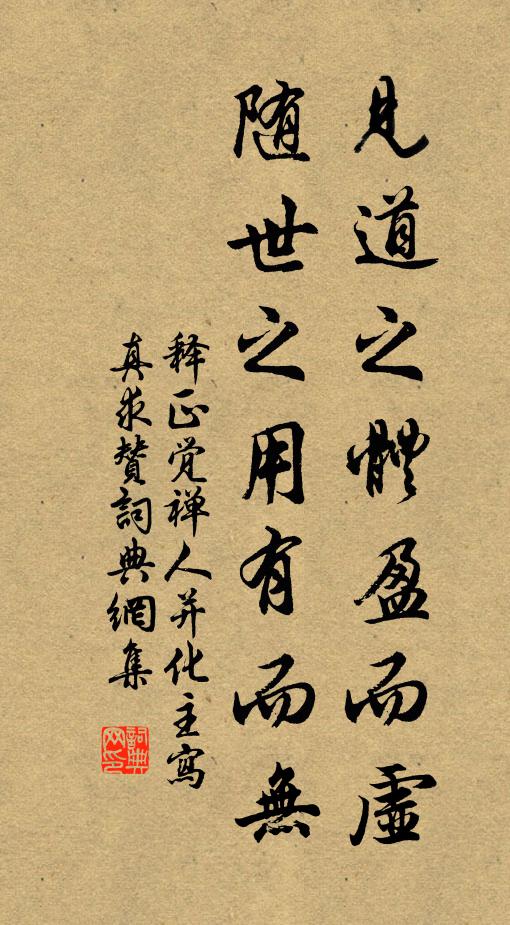 見道之體盈而虛
隨世之用有而無
释正觉禅人并化主寫
真求贊詞典網集
詞典
网印